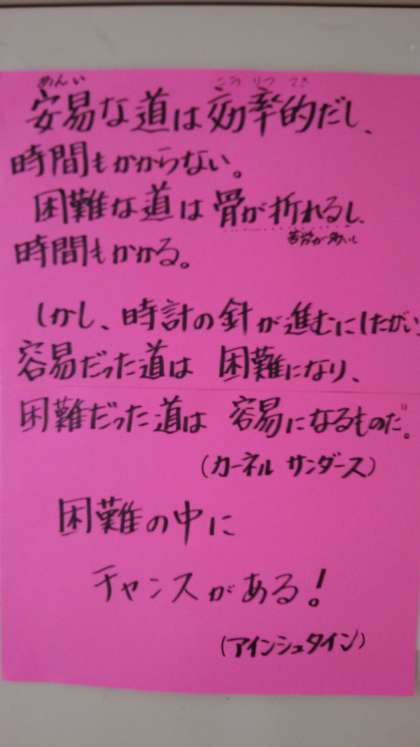 あんい こうりつ てき
安易な道は効率的だし、
時間もかからない。
困難な道は骨が折れるし、
苦労が多いし
時間もかかる。
しかし、時計の針が進むにしたがい、
容易だった道は 困難になり、
困難だった道は 容易になるものだ。
(カーネル サンダース)
困難の中に
チャンスがある!
(アインシュタイン)